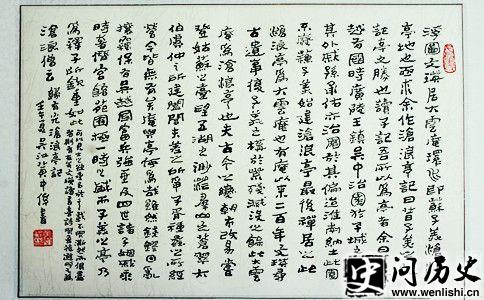 浮圖文瑛居大雲庵環水即蘇子美滄浪
亭地也亟求余作滄浪亭記曰昔子美之記
記亭之勝也請子記吾所以為亭者余曰昔吳
越有國時廣陵王鎮吳中治園於子城之西南
其外戚孫承佑亦治園於其偏迨淮海納土此園
不廢蘇子美始建滄浪亭最後禪居之此
滄浪亭為大雲庵也有庵以來二百年文瑛尋
古遺事復子美之構於荒殘滅沒之餘此大雲
庵為滄浪亭也夫古今之變朝市改易嘗
登姑蘇之臺望五湖之渺茫群山之蒼翠太
伯虞仲之所建闔閭夫差之所爭子胥種蠡之所經
營今皆無有矣庵與亭何為者哉雖然錢鏐因亂
攘竊保有吳越國富兵強垂及四世諸子姻戚乘
時奢僭宮館苑囿極一時之盛而子美之亭乃
為釋子所欽重如此
滄浪僧云 歸有光滄浪亭記
问历史
www.wenlishi.cn